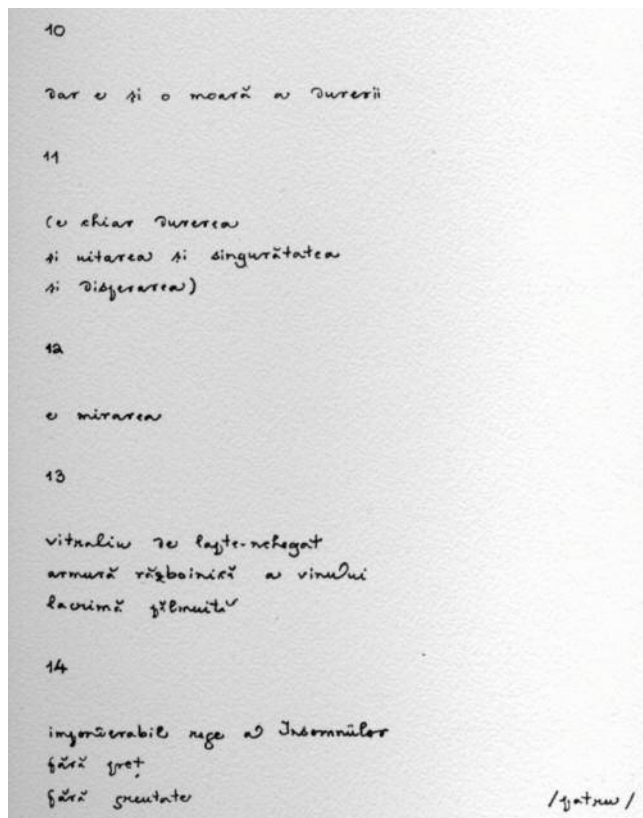 10
dar e și o moară a durerii
11
(e chiar durerea
și uitarea și singurătatea
și disperarea)
12
e mirarea
13
vitraliu de lapte-nchegat
armură războinică a vinului
lacrimă pălmuită
14
imponderabil rege al Insomniilor
fără preț
fără greutate
/patru/